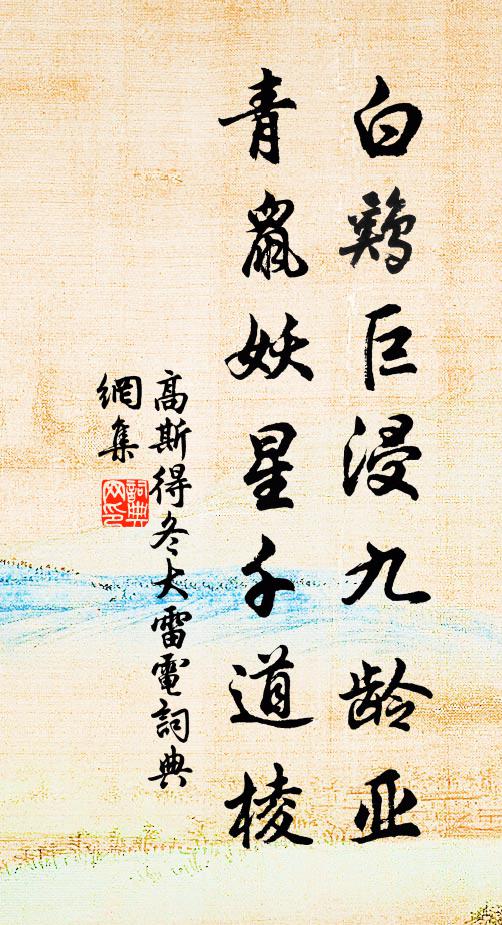 白鷄巨浸九龄亚
青鼠妖星千道棱
高斯得冬大雷電詞典
網集
詞典
网印